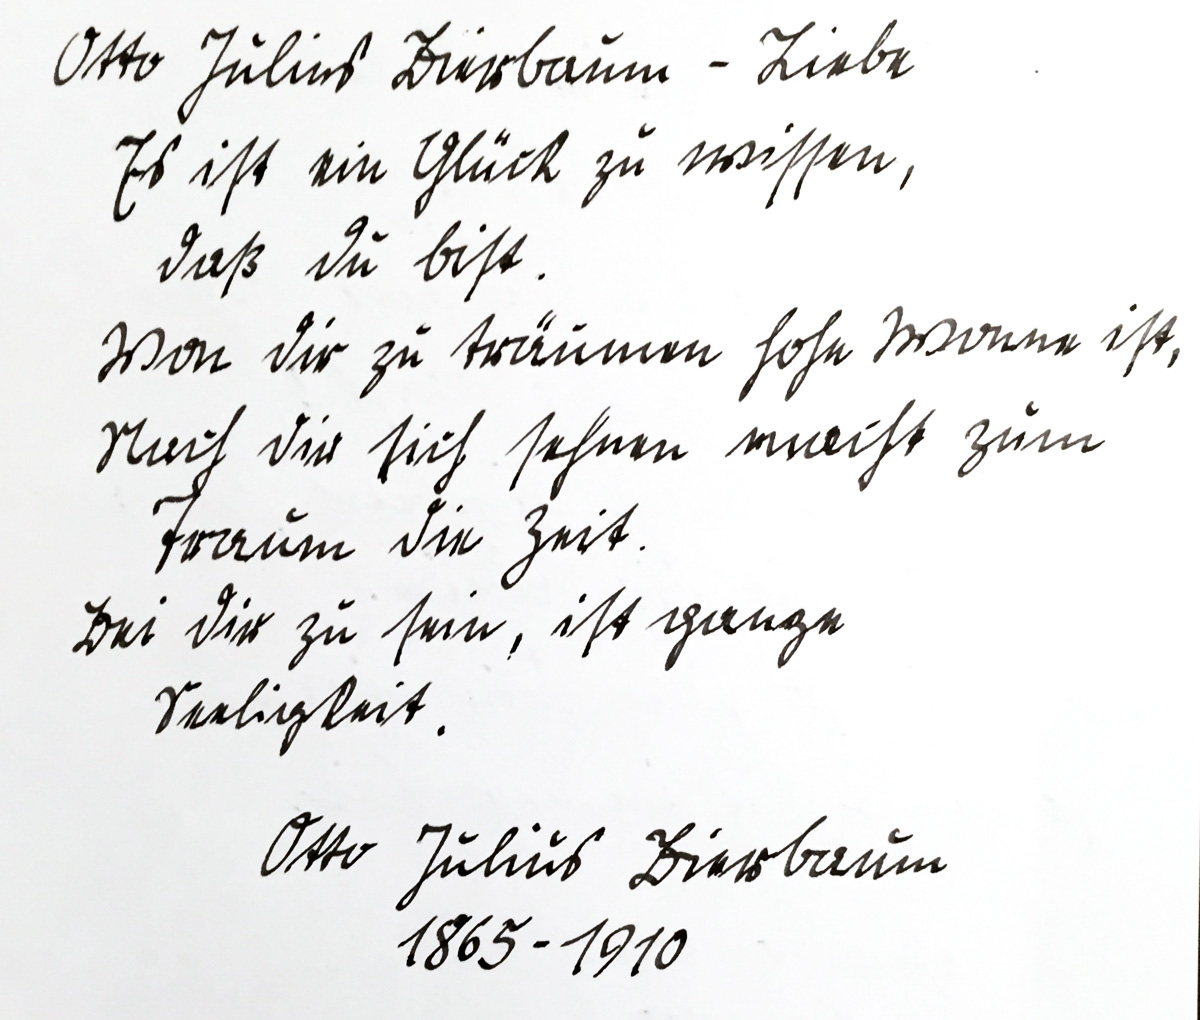 Otto Julius Bierbaum - Liebe
Es ist ein Glück zu wissen,
daß du bist.
Von dir zu träumen hohe Wonne ist,
Nach dir sich sehnen macht zum
Traum die Zeit.
Bei dir zu sein, ist ganze
Seeligkeit.
Otto Julius Bierbaum
1865-1910